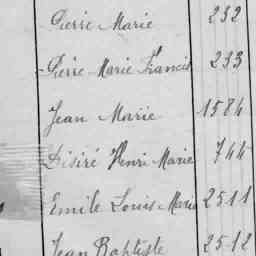 Pierre Marie 232
Pierre Marie Francis 233
Jean Marie 1584
Désiré Henri Marie 744
Emile Louis Marie 2511
Jean Baptiste 2512